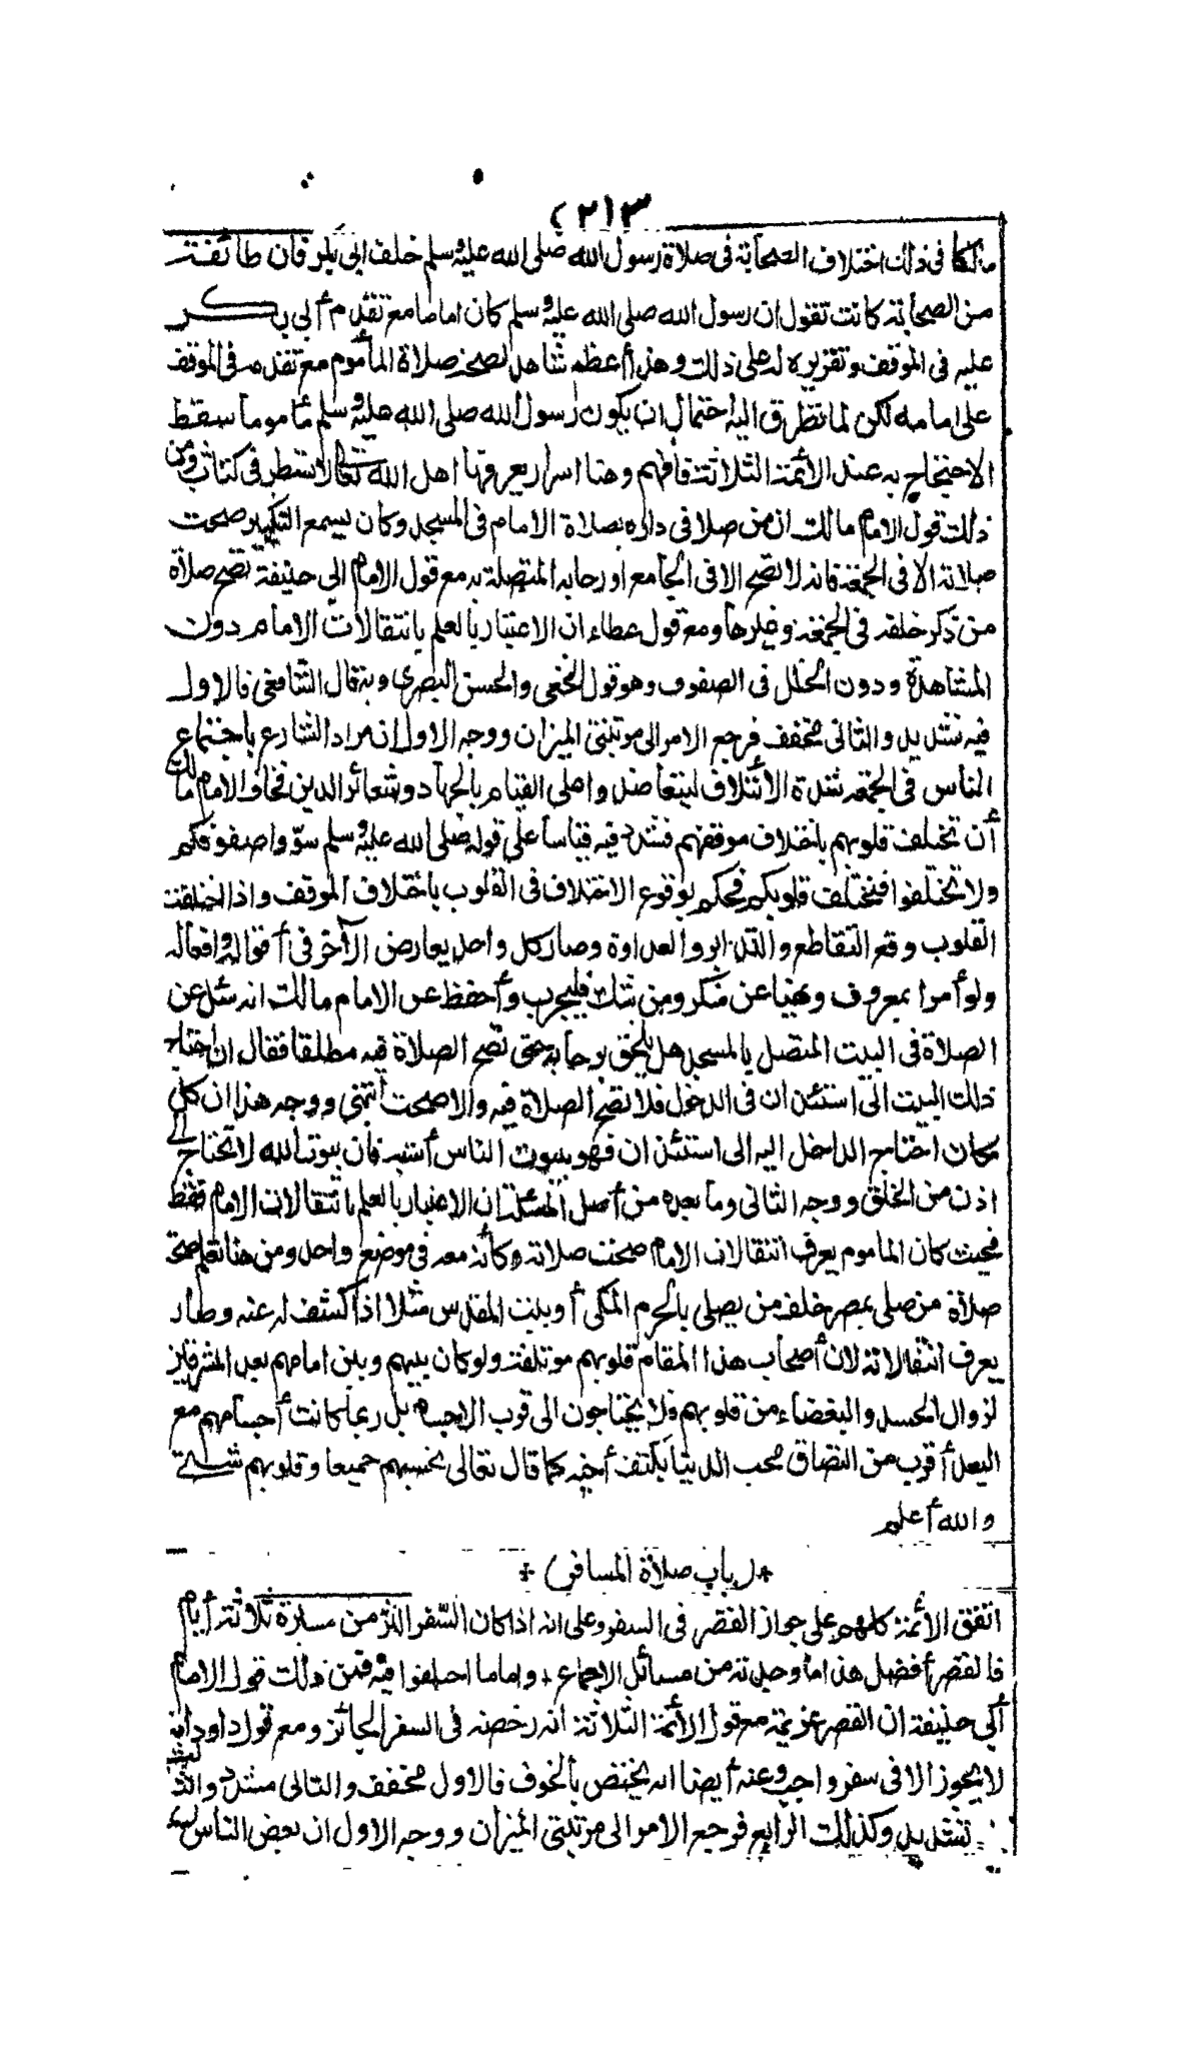 (٢١٣)
مالكا في ذلك اختلاف الصحابة في صلاة رسول الله صلى الله عليه وسلم خلف ابي بكر فان طائفة
من الصحابة كانت تقول ان رسول الله صلى الله عليه وسلم كان اماما مع تقدم أبي بكر
عليه في الموقف وتقريره له على ذلك وهذا أعظم شاهد لصحة صلاة المأموم مع تقدمه في الموقف
على امامه لكن لما تطرق اليه احتمال ان يكون رسول الله صلى الله عليه وسلم مأموما سقط
الاحتجاج به عند الأئمة الثلاثة فافهم وهنا اسرار يعرفها اهل الله تعالى لا تسطر في كتاب ومن
ذلك قول الامام مالك ان من صلا في داره بصلاة الامام في المسجد وكان يسمع التكبير صحت
صلاته الا في الجمعة فانه لا تصح الا في الجامع او رحابه المتصلة به مع قول الامام ابي حنيفة تصح صلاة
من ذكر خلفه في الجمعة وغيرها ومع قول عطاء ان الاعتبار بالعلم بانتقالات الامام دون
المشاهدة ودون الخلل في الصفوف وهو قول النخعي والحسن البصري وبه قال الشافعي فالاول
فيه تشديد والثاني مخفف فرجع الامر الى مرتبتي الميزان ووجه الاول ان مراد الشارع باجتماع
الناس في الجمعة شدة الأئتلاف ليتعاضدوا على القيام بالجهاد وشعائر الدين فخاف الامام مالك
أن تختلف قلوبهم باختلاف موقفهم فشدد فيه قياسا على قوله صلى الله عليه وسلم سووا صفوفكم
ولا تختلفوا فتختلف قلوبكم فحكم بوقوع الاختلاف في القلوب باختلاف الموقف واذا اختلفت
القلوب وقع التقاطع والتدابر والعداوة وصار كل واحد يعارض الآخر في أقواله وافعاله
ولو أمر بمعروف ونهيا عن منكر ومن شك فليجرب وأحفظ عن الامام مالك انه سئل عن
الصلاة في البيت المتصل بالمسجد هل يلحق برحابه حتى تصح الصلاة فيه مطلقا فقال ان احتاج
ذلك البيت الى استئذان في الدخول فلا تصح الصلاة فيه والا صحت أنتهى ووجه هذا ان كل
مكان احتاج الداخل اليه الى استئذان فهو ببيوت الناس أشبه فان بيوت الله لا تحتاج الى
اذن من الخلق ووجه الثاني وما بعده من أصل المسئلة ان الاعتبار بالعلم بانتقالات الامام فقط
فحيث كان الماموم يعرف انتقالات الامام صحت صلاته وكأنه معه في موضع واحد ومن هنا تعلم صحة
صلاة من صلى بمصر خلف من يصلي بالحرم المكي أو بيت المقدس مثلا اذا كشف له عنه وصار
يعرف انتقالاته لان أصحاب هذا المقام قلوبهم مؤتلفة ولو كان بينهم وبين امامهم بعد المشرقين
لزوال الحسد والبغضاء من قلوبهم ولا يحتاجون الى قرب الاجسام بل ربما كانت أجسامهم مع
البعد أقرب من التصاق محب الدنيا بكتف أخيه كما قال تعالى تحسبهم جميعا وقلوبهم شتى
والله أعلم
*(باب صلاة المسافر)*
اتفق الأئمة كلهم على جواز القصر في السفر وعلى انه اذا كان السفر اكثر من مسيرة ثلاثة أيام
فالقصر أفضل هذا ما وجدته من مسائل الاجماع * واما ما اختلفوا فيه فمن ذلك قول الامام
أبي حنيفة ان القصر عزيمة مع قول الأئمة الثلاثة انه رخصة في السفر الجائز ومع قول داود انه
لا يجوز الا في سفر واجب وعنه أيضا انه يختص بالخوف فالاول مخفف والثاني مشدد والثالث فيه
تشديد وكذلك الرابع فرجع الامر الى مرتبتي الميزان ووجه الاول ان بعض الناس